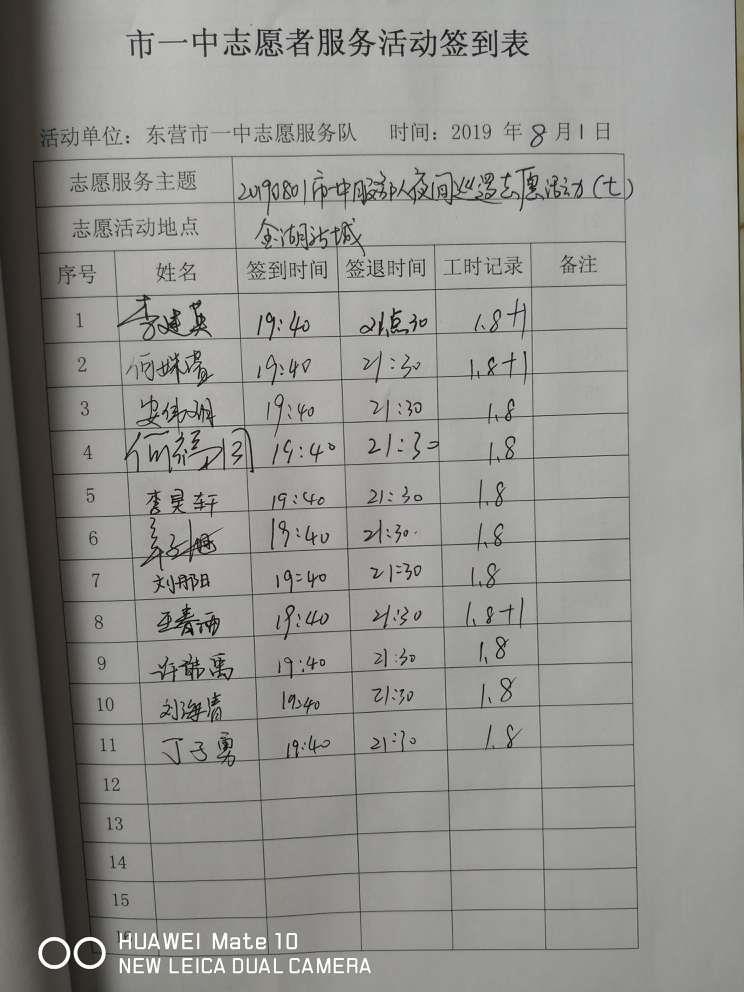 市一中志愿者服务活动签到表
活动单位：东营市一中志愿服务队 时间：2019 年 8 月 1 日
志愿服务主题 20190801市一中服务队夜间巡逻志愿活动(七)
志愿活动地点 金湖站城
序号 姓名 签到时间 签退时间 工时记录 备注
1 李建英 19:40 21点30 1.8+1
2 19:40 21:30 1.8+1
3 安伟明 19:40 21:30 1.8
4 19:40 21:30 1.8
5 李昊轩 19:40 21:30 1.8
6 19:40 21:30. 1.8
7 19:40 21:30 1.8
8 王春 19:40 21:30 1.8+1
9 许禹 19:40 21:30 1.8
10 刘海清 19:40 21:30 1.8
11 丁子勇 19:40 21:30 1.8
12
13
14
15
16
HUAWEI Mate 10
NEW LEICA DUAL CAMERA